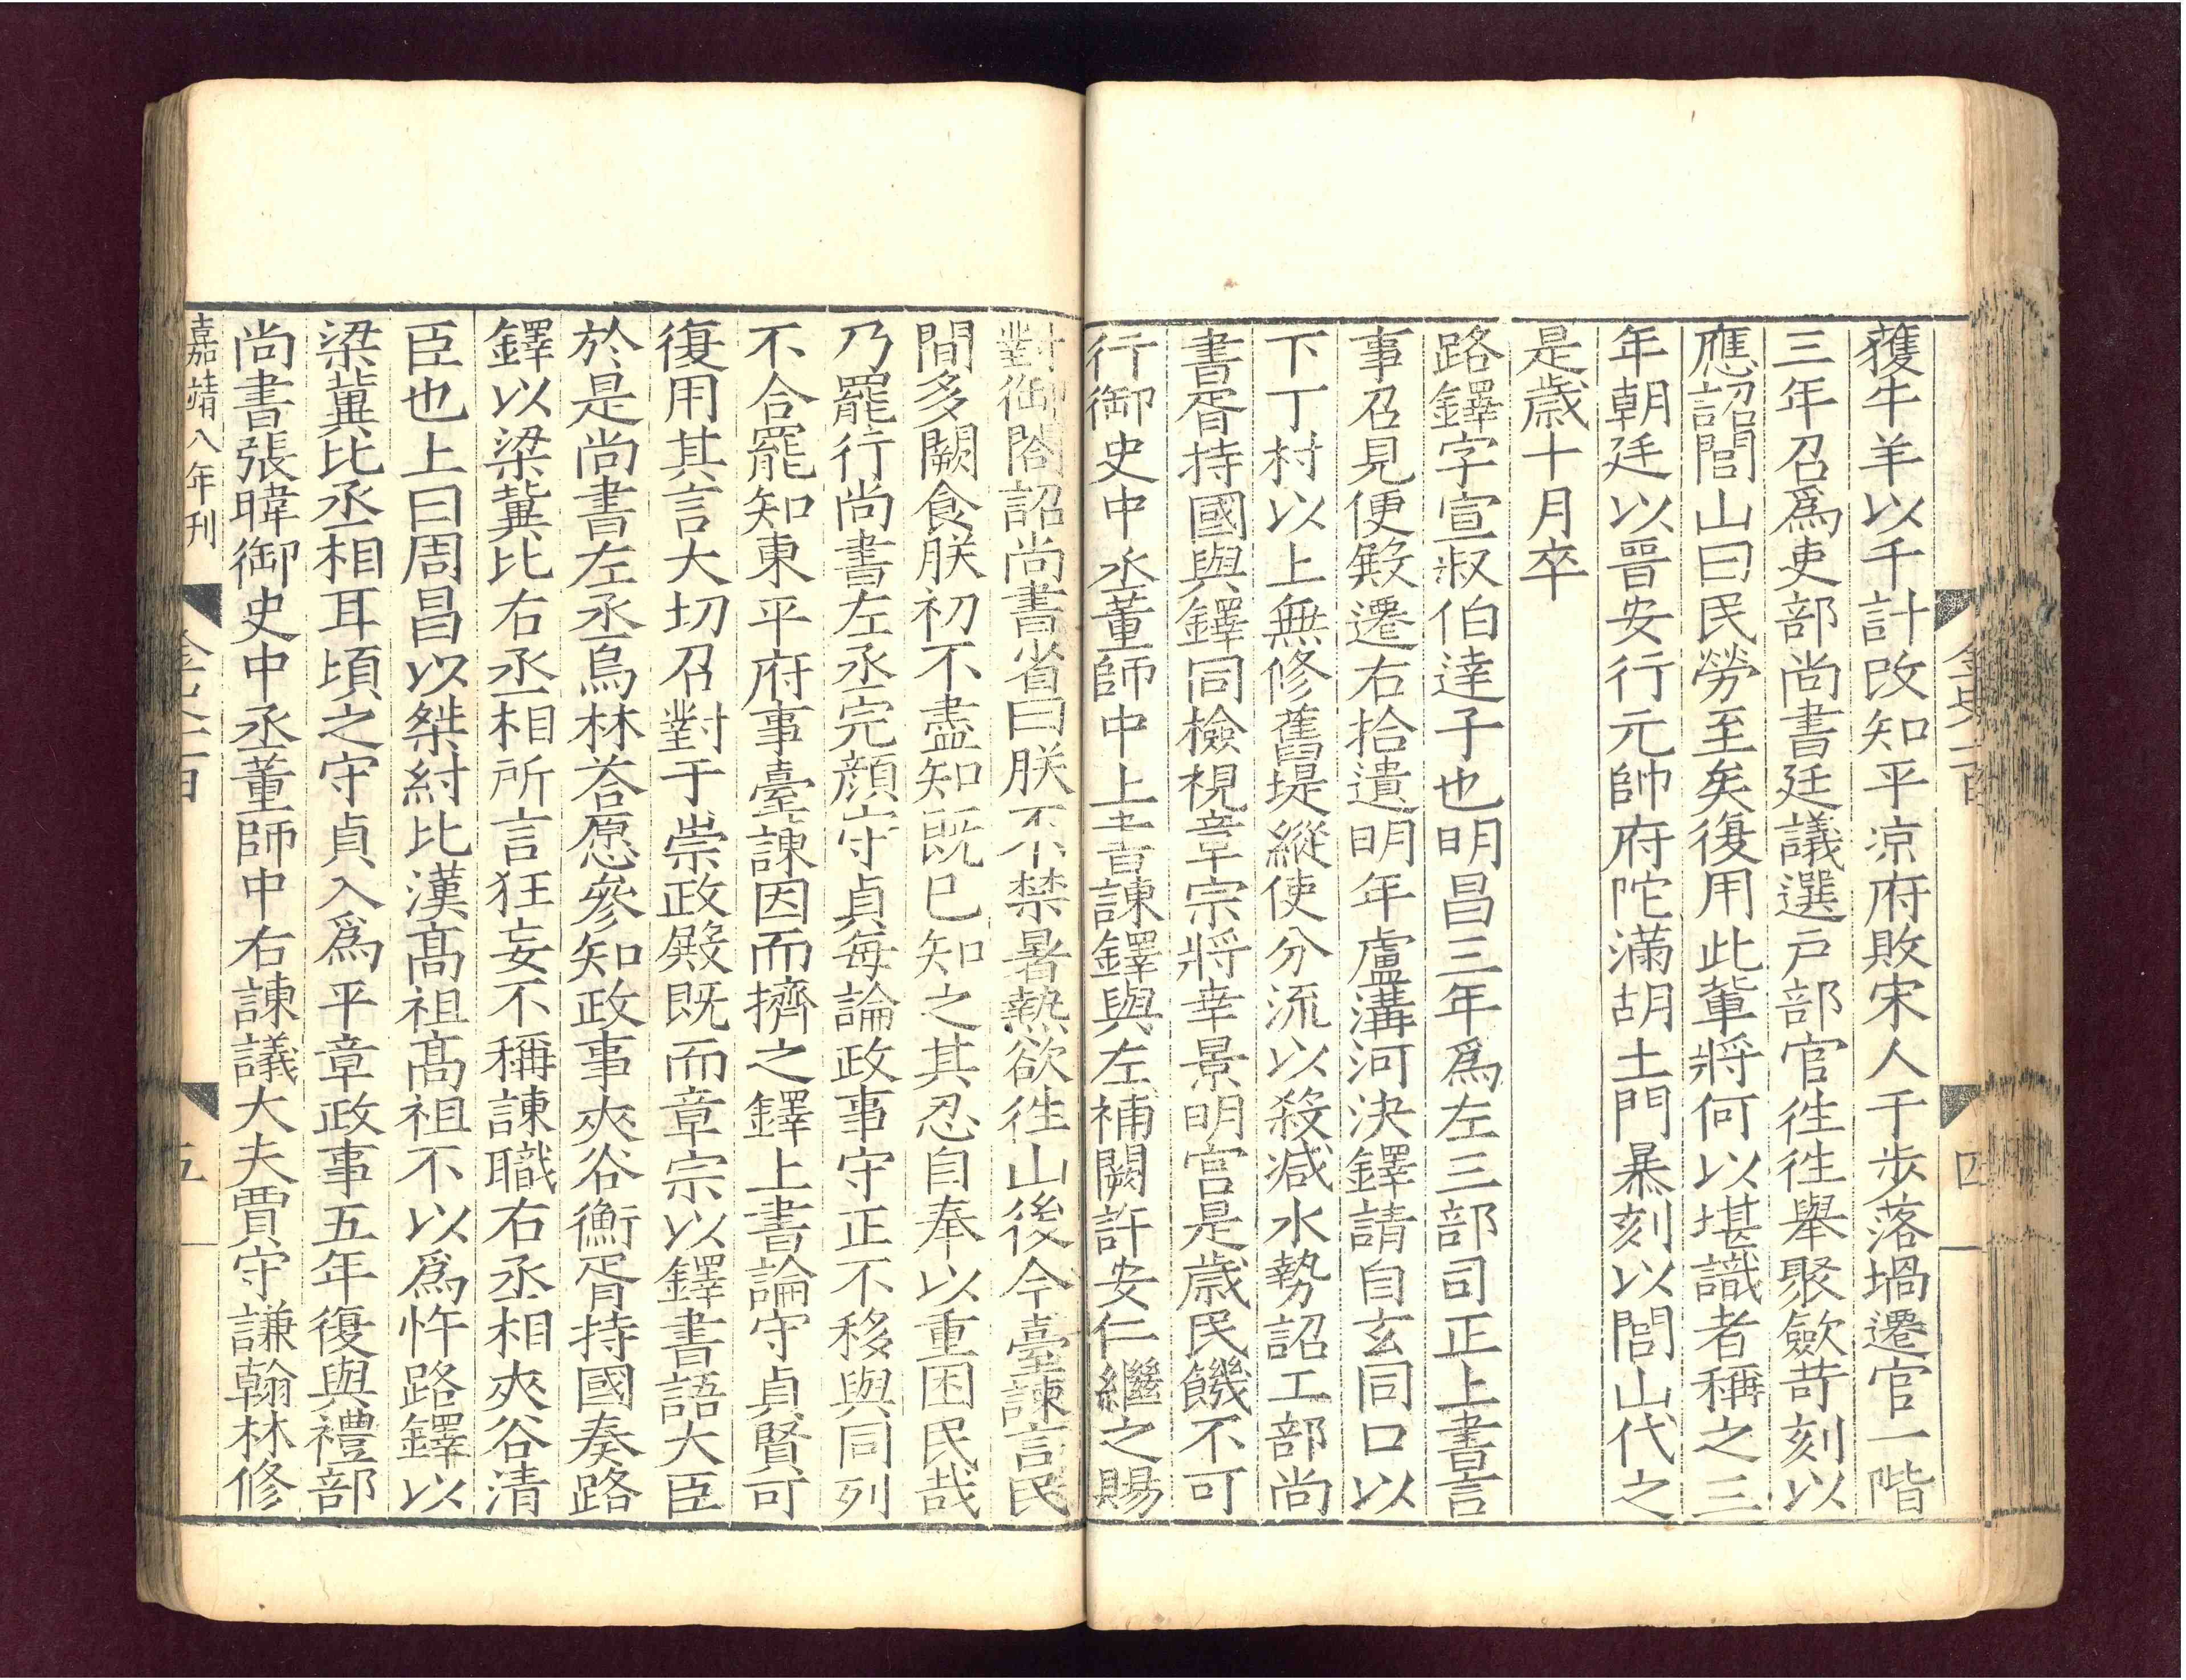 金史一百
四
獲牛羊以千計改知平涼府敗宋人于步落堝遷官一階
三年召爲吏部尚書廷議選戶部官徃徃舉聚斂苛刻以
應詔閭山曰民勞至矣復用此輩將何以堪識者稱之三
年朝廷以晉安行元帥府陀滿胡土門暴刻以閭山代之
是歲十月卒
路鐸字宣叔伯達子也明昌三年爲左三部司正上書言
事召見便殿遷右拾遺明年盧溝河決鐸請自玄同口以
下丁村以上無修舊堤縱使分流以殺減水勢詔工部尚
書胥持國與鐸同檢視章宗將幸景明宮是歲民饑不可
行御史中丞董師中上書諫鐸與左補闕許安仁繼之賜
對御閤詔尚書省曰朕不禁暑熱欲徃山後今臺諫言民
間多闕食朕初不盡知既已知之其忍自奉以重困民哉
乃罷行尚書左丞完顔守貞每論政事守正不移與同列
不合罷知東平府事臺諫因而擠之鐸上書論守貞賢可
復用其言大切召對于崇政殿既而章宗以鐸書語大臣
於是尚書左丞烏林荅愿參知政事夾谷衡胥持國奏路
鐸以梁冀比右丞相所言狂妄不稱諫職右丞相夾谷清
臣也上曰周昌以桀紂比漢高祖高祖不以爲忤路鐸以
梁冀比丞相耳頃之守貞入爲平章政事五年復與禮部
尚書張暐御史中丞董師中右諫議大夫賈守謙翰林修
嘉靖八年刊
五